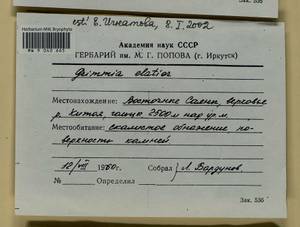 est! Е. Игнатова, 8.I.2002
Herbarium MW, Bryophyta
MW 9 040 665
Академия наук СССР
ГЕРБАРИЙ им. М. Г. ПОПОВА (г. Иркутск)
Grimmia elatior
Местонахождение: Восточные Саяны, верховье
р. Китоя, гольцы 2500 м над ур. м.
Местообитание: скалистое обнажение по-
верхность камней
12/VII 1960г. Собрал Л. Бардунов
№ Определил
Зак. 536
Зак. 536